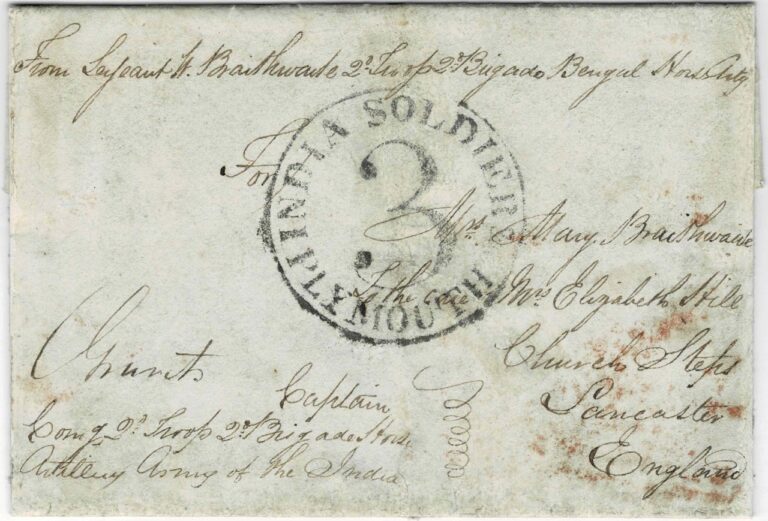 From Serjeant W. Braithwaite 2d. Troop 2d Brigade Bengal Horse Arty
For
INDIA SOLDIER
3
PLYMOUTH
Mrs. Mary Braithwaite
To the care Mrs Elizabeth Hill
Church Steps
Lancaster
England
Captain
Comg. 2d. Troop 2d Brigade Horse
Artillery Army of the India